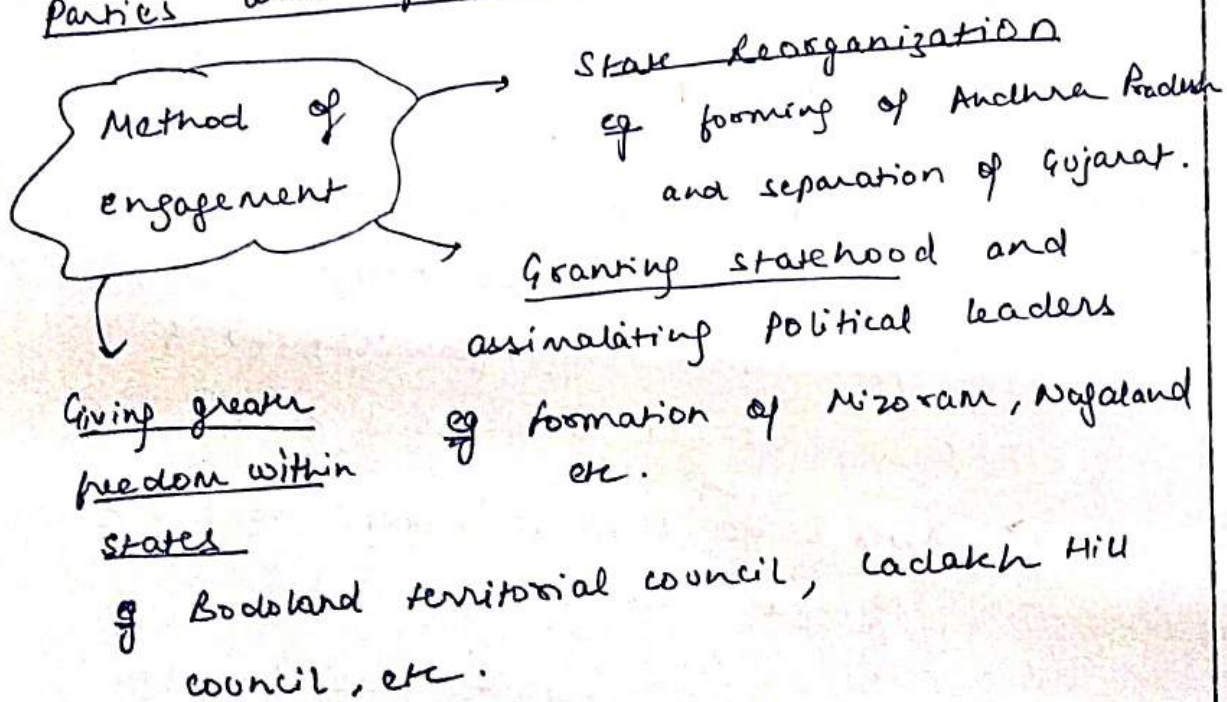 Parties
Method of
engagement
State Reorganization
eg forming of Andhra Pradesh
and separation of Gujarat.
Granting statehood and
assimalating political leaders
eg formation of Mizoram, Nagaland
etc.
Giving greater
freedom within
states
eg Bodoland territorial council, Ladakh Hill
council, etc.